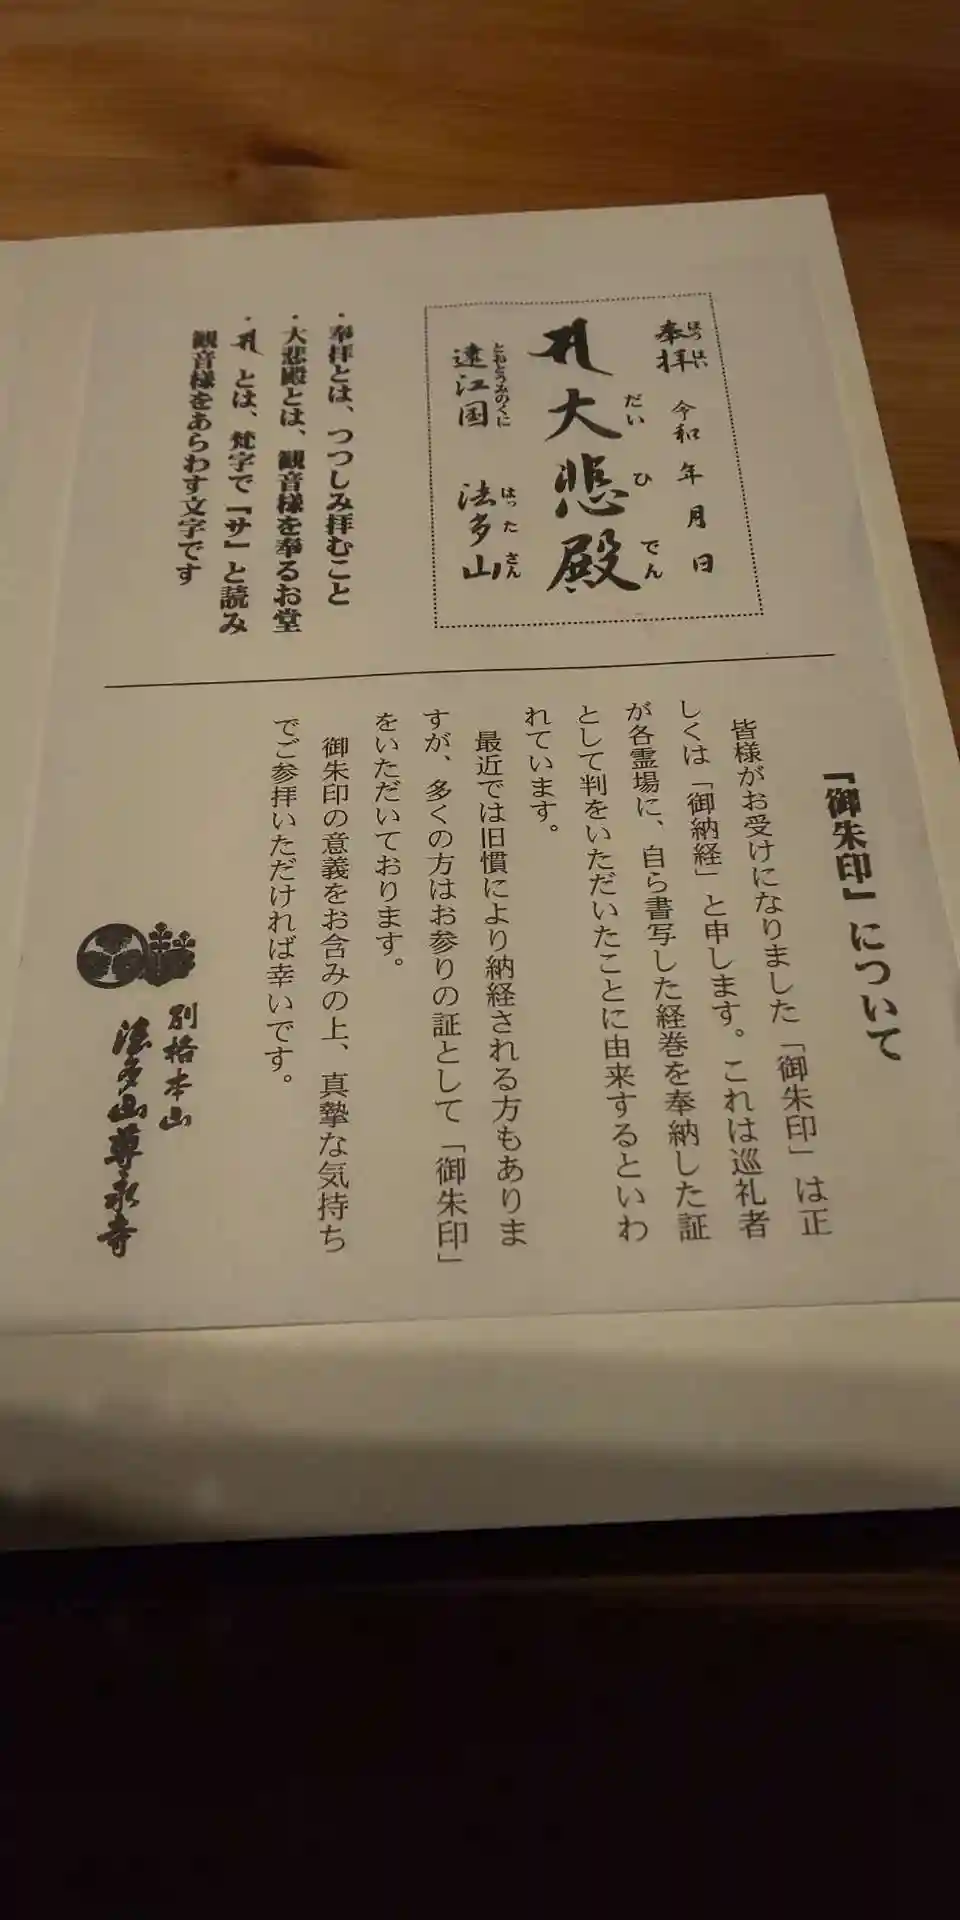 奉拝 令和 年 月 日
ほうはい
大悲殿
だい ひ でん
遠江国 法多山
とおとうみのくに はったさん
・奉拝とは、つつしみ拝むこと
・大悲殿とは、観音様を奉るお堂
・ とは、梵字で「サ」と読み
観音様をあらわす文字です
「御朱印」について
皆様がお受けになりました「御朱印」は正
しくは「御納経」と申します。これは巡礼者
が各霊場に、自ら書写した経巻を奉納した証
として判をいただいたことに由来するといわ
れています。
最近では旧慣により納経される方もありま
すが、多くの方はお参りの証として「御朱印」
をいただいております。
御朱印の意義をお含みの上、真摯な気持ち
でご参拝いただければ幸いです。
別格本山
法多山尊永寺